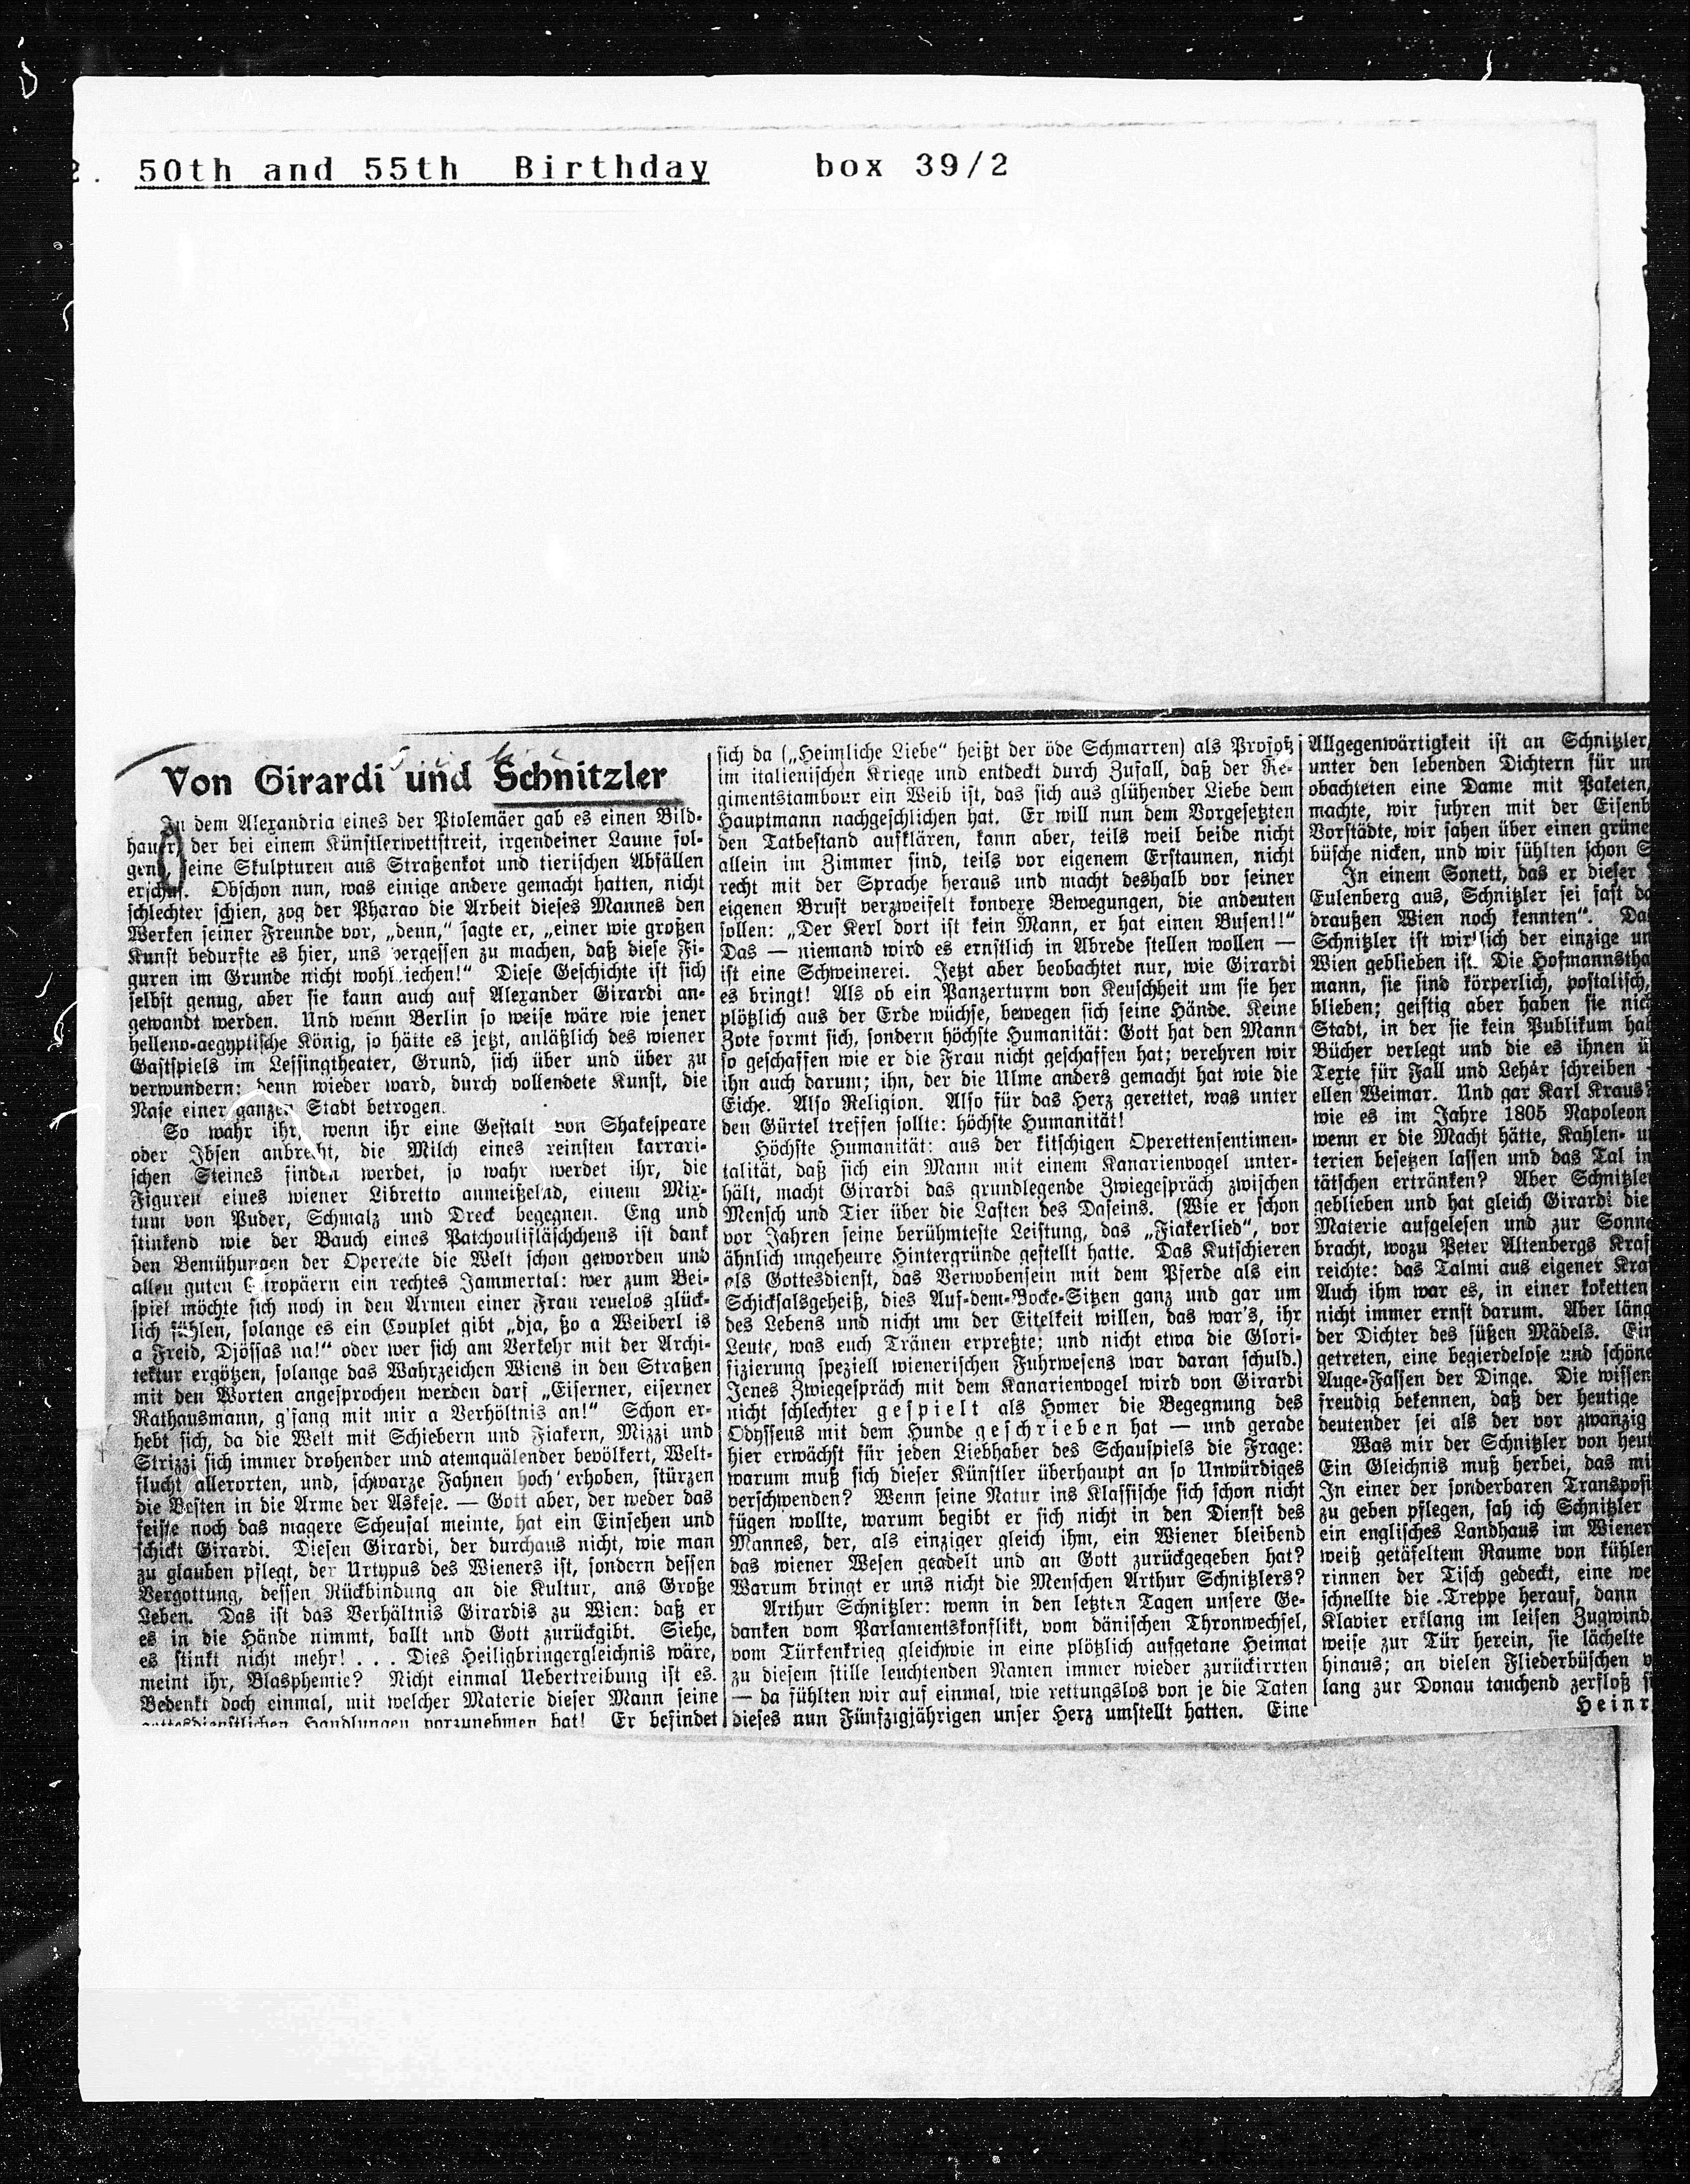 2. 50th and 55th Birthday box 39/2
Von Girardi und Schnitzler
In dem Alexandria eines der Ptolemäer gab es einen Bild-
hauer, der bei einem Künstlerwettstreit, irgendeiner Laune fol-
gend, seine Skulpturen aus Straßenkot und tierischen Abfällen
erschuf. Obschon nun, was einige andere gemacht hatten, nicht
schlechter schien, zog der Pharao die Arbeit dieses Mannes den
Werken seiner Freunde vor, „denn,“ sagte er, „einer wie großen
Kunst bedurfte es hier, uns vergessen zu machen, daß diese Fi-
guren im Grunde nicht wohlriechen!“ Diese Geschichte ist sich
selbst genug, aber sie kann auch auf Alexander Girardi an-
gewandt werden. Und wenn Berlin so weise wäre wie jener
helleno-aegyptische König, so hätte es jetzt, anläßlich des wiener
Gastspiels im Lessingtheater, Grund, sich über und über zu
verwundern: denn wieder ward, durch vollendete Kunst, die
Nase einer ganzen Stadt betrogen.
So wahr ihr, wenn ihr eine Gestalt von Shakespeare
oder Ibsen anbrecht, die Milch eines reinsten karrari-
schen Steines finden werdet, so wahr werdet ihr, die
Figuren eines wiener Libretto anmeißelnd, einem Mix-
tum von Puder, Schmalz und Dreck begegnen. Eng und
stinkend wie der Bauch eines Patchoulifläschchens ist dank
den Bemühungen der Operette die Welt schon geworden und
allen guten Europäern ein rechtes Jammertal: wer zum Bei-
spiel möchte sich noch in den Armen einer Frau reuelos glück-
lich fühlen, solange es ein Couplet gibt „dja, ßo a Weiberl is
a Freid, Djössas na!“ oder wer sich am Verkehr mit der Archi-
tektur ergötzen, solange das Wahrzeichen Wiens in den Straßen
mit den Worten angesprochen werden darf „Eiserner, eiserner
Rathausmann, g'sang mit mir a Verhöltnis an!“ Schon er-
hebt sich, da die Welt mit Schiebern und Fiakern, Mizzi und
Strizzi sich immer drohender und atemquälender bevölkert, Welt-
flucht allerorten, und, schwarze Fahnen hoch erhoben, stürzen
die Besten in die Arme der Askese. — Gott aber, der weder das
feiste noch das magere Scheusal meinte, hat ein Einsehen und
schickt Girardi. Diesen Girardi, der durchaus nicht, wie man
zu glauben pflegt, der Urtypus des Wieners ist, sondern dessen
Vergottung, dessen Rückbindung an die Kultur, ans Große
Leben. Das ist das Verhältnis Girardis zu Wien: daß er
es in die Hände nimmt, ballt und Gott zurückgibt. Siehe,
es stinkt nicht mehr! . . . Dies Heiligbringergleichnis wäre,
meint ihr, Blasphemie? Nicht einmal Uebertreibung ist es.
Bedenkt doch einmal, mit welcher Materie dieser Mann seine
gottesdienstlichen Handlungen vorzunehmen hat! Er befindet
sich da („Heimliche Liebe“ heißt der öde Schmarren) als Profoß
im italienischen Kriege und entdeckt durch Zufall, daß der Re-
gimentstambour ein Weib ist, das sich aus glühender Liebe dem
Hauptmann nachgeschlichen hat. Er will nun dem Vorgesetzten
den Tatbestand aufklären, kann aber, teils weil beide nicht
allein im Zimmer sind, teils vor eigenem Erstaunen, nicht
recht mit der Sprache heraus und macht deshalb vor seiner
eigenen Brust verzweifelt konvexe Bewegungen, die andeuten
sollen: „Der Kerl dort ist kein Mann, er hat einen Busen!!“
Das — niemand wird es ernstlich in Abrede stellen wollen —
ist eine Schweinerei. Jetzt aber beobachtet nur, wie Girardi
es bringt! Als ob ein Panzerturm von Keuschheit um sie her
plötzlich aus der Erde wüchse, bewegen sich seine Hände. Keine
Zote formt sich, sondern höchste Humanität: Gott hat den Mann
so geschaffen wie er die Frau nicht geschaffen hat; verehren wir
ihn auch darum; ihn, der die Ulme anders gemacht hat wie die
Eiche. Also Religion. Also für das Herz gerettet, was unter
den Gürtel treffen sollte: höchste Humanität!
Höchste Humanität: aus der kitschigen Operettensentimen-
talität, daß sich ein Mann mit einem Kanarienvogel unter-
hält, macht Girardi das grundlegende Zwiegespräch zwischen
Mensch und Tier über die Lasten des Daseins. (Wie er schon
vor Jahren seine berühmteste Leistung, das „Fiakerlied“, vor
ähnlich ungeheure Hintergründe gestellt hatte. Das Kutschieren
als Gottesdienst, das Verwobensein mit dem Pferde als ein
Schicksalsgeheiß, dies Auf-dem-Bocke-Sitzen ganz und gar um
des Lebens und nicht um der Eitelkeit willen, das war's, ihr
Leute, was euch Tränen erpreßte; und nicht etwa die Glori-
fizierung speziell wienerischen Fuhrwesens war daran schuld.)
Jenes Zwiegespräch mit dem Kanarienvogel wird von Girardi
nicht schlechter gespielt als Homer die Begegnung des
Odysseus mit dem Hunde geschrieben hat — und gerade
hier erwächst für jeden Liebhaber des Schauspiels die Frage:
warum muß sich dieser Künstler überhaupt an so Unwürdiges
verschwenden? Wenn seine Natur ins Klassische sich schon nicht
fügen wollte, warum begibt er sich nicht in den Dienst des
Mannes, der, als einziger gleich ihm, ein Wiener bleibend
das wiener Wesen geadelt und an Gott zurückgegeben hat?
Warum bringt er uns nicht die Menschen Arthur Schnitzlers?
Arthur Schnitzler: wenn in den letzten Tagen unsere Ge-
danken vom Parlamentskonflikt, vom dänischen Thronwechsel,
vom Türkenkrieg gleichwie in eine plötzlich aufgetane Heimat
zu diesem stille leuchtenden Namen immer wieder zurückirrten
— da fühlten wir auf einmal, wie rettungslos von je die Taten
dieses nun Fünfzigjährigen unser Herz umstellt hatten. Eine
Allgegenwärtigkeit ist an Schnitzler,
unter den lebenden Dichtern für un
obachteten eine Dame mit Paketen,
machte, wir fuhren mit der Eisenb
Vorstädte, wir sahen über einen grüne
büsche nicken, und wir fühlten schon S
In einem Sonett, das er dieser
Eulenberg aus, Schnitzler sei fast da
draußen Wien noch kennten“. Da
Schnitzler ist wirklich der einzige un
Wien geblieben ist. Die Hofmannstha
mann, sie sind körperlich, postalisch,
blieben; geistig aber haben sie nic
Stadt, in der sie kein Publikum hab
Bücher verlegt und die es ihnen ü
Texte für Fall und Lehár schreiben -
ellen Weimar. Und gar Karl Kraus?
wie es im Jahre 1805 Napoleon
wenn er die Macht hätte, Kahlen- u
terien besetzen lassen und das Tal in
tätschen ertränken? Aber Schnitzler
geblieben und hat gleich Girardi die
Materie aufgelesen und zur Sonne
bracht, wozu Peter Altenbergs Kraf
reichte: das Talmi aus eigener Kra
Auch ihm war es, in einer koketten
nicht immer ernst darum. Aber läng
der Dichter des süßen Mädels. Ein
getreten, eine begierdelose und schöne
Auge-Fassen der Dinge. Die wissen
freudig bekennen, daß der heutige
deutender sei als der vor zwanzig
Was mir der Schnitzler von heut
Ein Gleichnis muß herbei, das mi
In einer der sonderbaren Transposi
zu geben pflegen, sah ich Schnitzler
ein englisches Landhaus im Wiener
weiß getäfeltem Raume von kühlen
rinnen der Tisch gedeckt, eine we
schnellte die Treppe herauf, dann
Klavier erklang im leisen Zugwind
weise zur Tür herein, sie lächelte
hinaus; an vielen Fliederbüschen v
lang zur Donau tauchend zerfloß si
Heinr